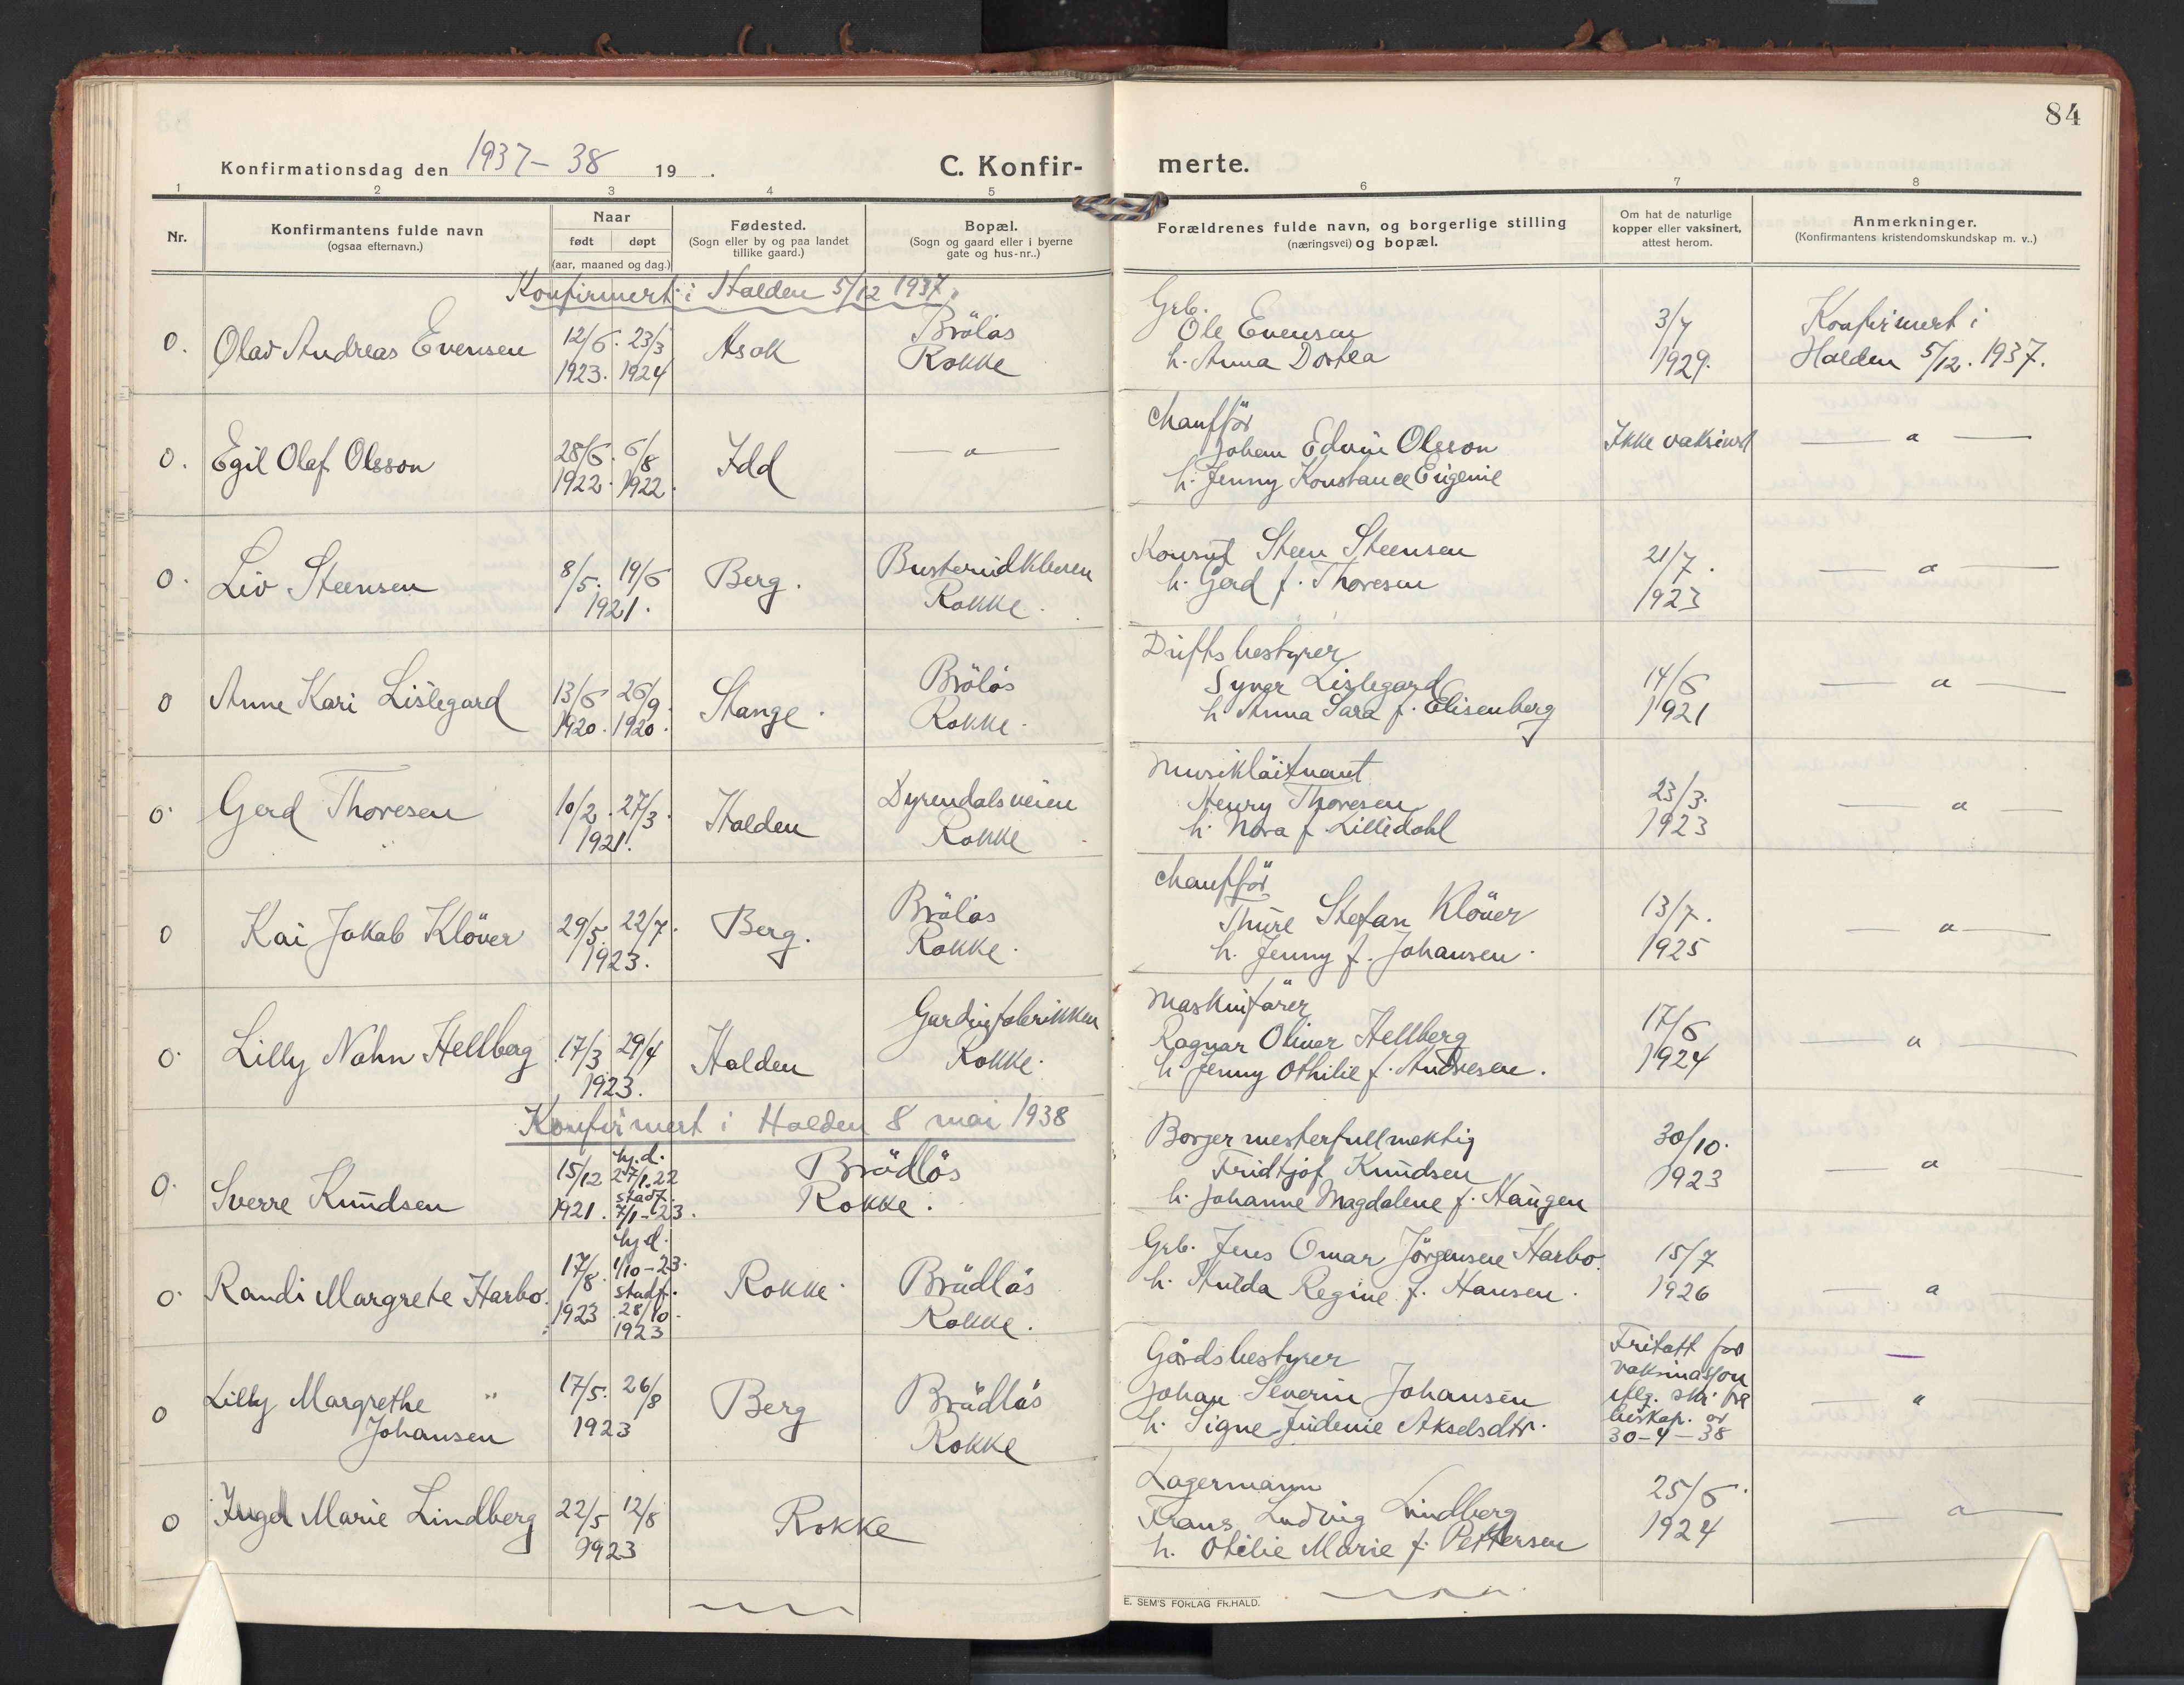 84
Konfirmationsdag den 1937-38 19 .
C. Konfir- merte.
1 2 3 4 5 6 7 8
Nr.
Konfirmantens fulde navn
(ogsaa efternavn.)
Naar
født døpt
(aar, maaned og dag.)
Fødested.
(Sogn eller by og paa landet
tillike gaard.)
Bopæl.
(Sogn og gaard eller i byerne
gate og hus-nr..)
Forældrenes fulde navn, og borgerlige stilling
(næringsvei) og bopæl.
Om hat de naturlige
kopper eller vaksinert,
attest herom.
Anmerkninger.
(Konfirmantens kristendomskundskap m. v..)
Konfirmert i Halden 5/12 1937.
0. Olav Andreas Evensen 12/6. 1923. 23/3 1924 Asak
Brölös
Rokke
Grb.
Ole Evensen
h. Anna Dortea
3/7
1929.
Konfirmert i
Halden 5/12. 1937.
0. Egil Olaf Olsson 28/6. 1922. 6/8 1922. Idd — " —
Chaufför
Johan Edvin Olsson
h. Jenny Konstance Eugenie
Ikke vaksinert — " —
0. Liv Steensen 8/5. 19/6 1921. Berg.
Busterudkleven
Rokke.
Konsul Steen Steensen
h. Gerd f. Thoresen
21/7.
1923
— " —
0 Anne Kari Lislegard 13/6 1920. 26/9. 1920. Stange.
Brölös
Rokke.
Driftsbestyrer
Syver Lislegard
h. Anna Sara f. Elisenberg
14/6
1921
— " —
0. Gerd Thoresen 10/2. 27/3. 1921. Halden
Dyrendalsveien
Rokke
Musiklöitnant
Henry Thoresen
h. Nora f. Lilledahl
23/3.
1923
— " —
0 Kai Jakob Klöver 29/5. 22/7. 1923. Berg.
Brölös
Rokke.
Chaufför
Thure Stefan Klöver
h. Jenny f. Johansen.
13/7.
1925
— " —
0. Lilly Nohn Hellberg 17/3 29/4 1923. Halden
Gardinfabrikken
Rokke.
Maskinförer
Ragnar Oliver Hellberg
h. Jenny Othilie f. Andresen.
17/6
1924
— " —
Konfirmert i Halden 8 mai 1938
0. Sverre Knudsen 15/12 1921. hj.d. 27/1.22 stadf. 7/1-23.
Brödlös
Rokke.
Borgermesterfullmektig
Fridtjof Knudsen
h. Johanne Magdalene f. Haugen
30/10.
1923
— " —
0. Randi Margrete Harbo. 17/8. 1923 hj.d. 1/10-23. stadf. 28/10. 1923 Rokke.
Brödlös
Rokke.
Grb. Jens Omar Jörgensen Harbo.
h. Hulda Regine f. Hansen.
15/7
1926
— " —
0 Lilly Margrethe
Johansen
17/5. 26/8 1923 Berg
Brödlös
Rokke
Gårdsbestyrer
Johan Severin Johansen
h. Signe Judenie Akselsdtr.
Fritatt for
vaksinasjon
iflg. skr. fra
biskop. av
30-4-38
— " —
0 Inger Marie Lindberg 22/5 12/8 1923 Rokke
Lagermann
Frans Ludvig Lindberg
h. Otilie Marie f. Pettersen
25/6.
1924
— " —
E. SEM'S FORLAG FR.HALD.